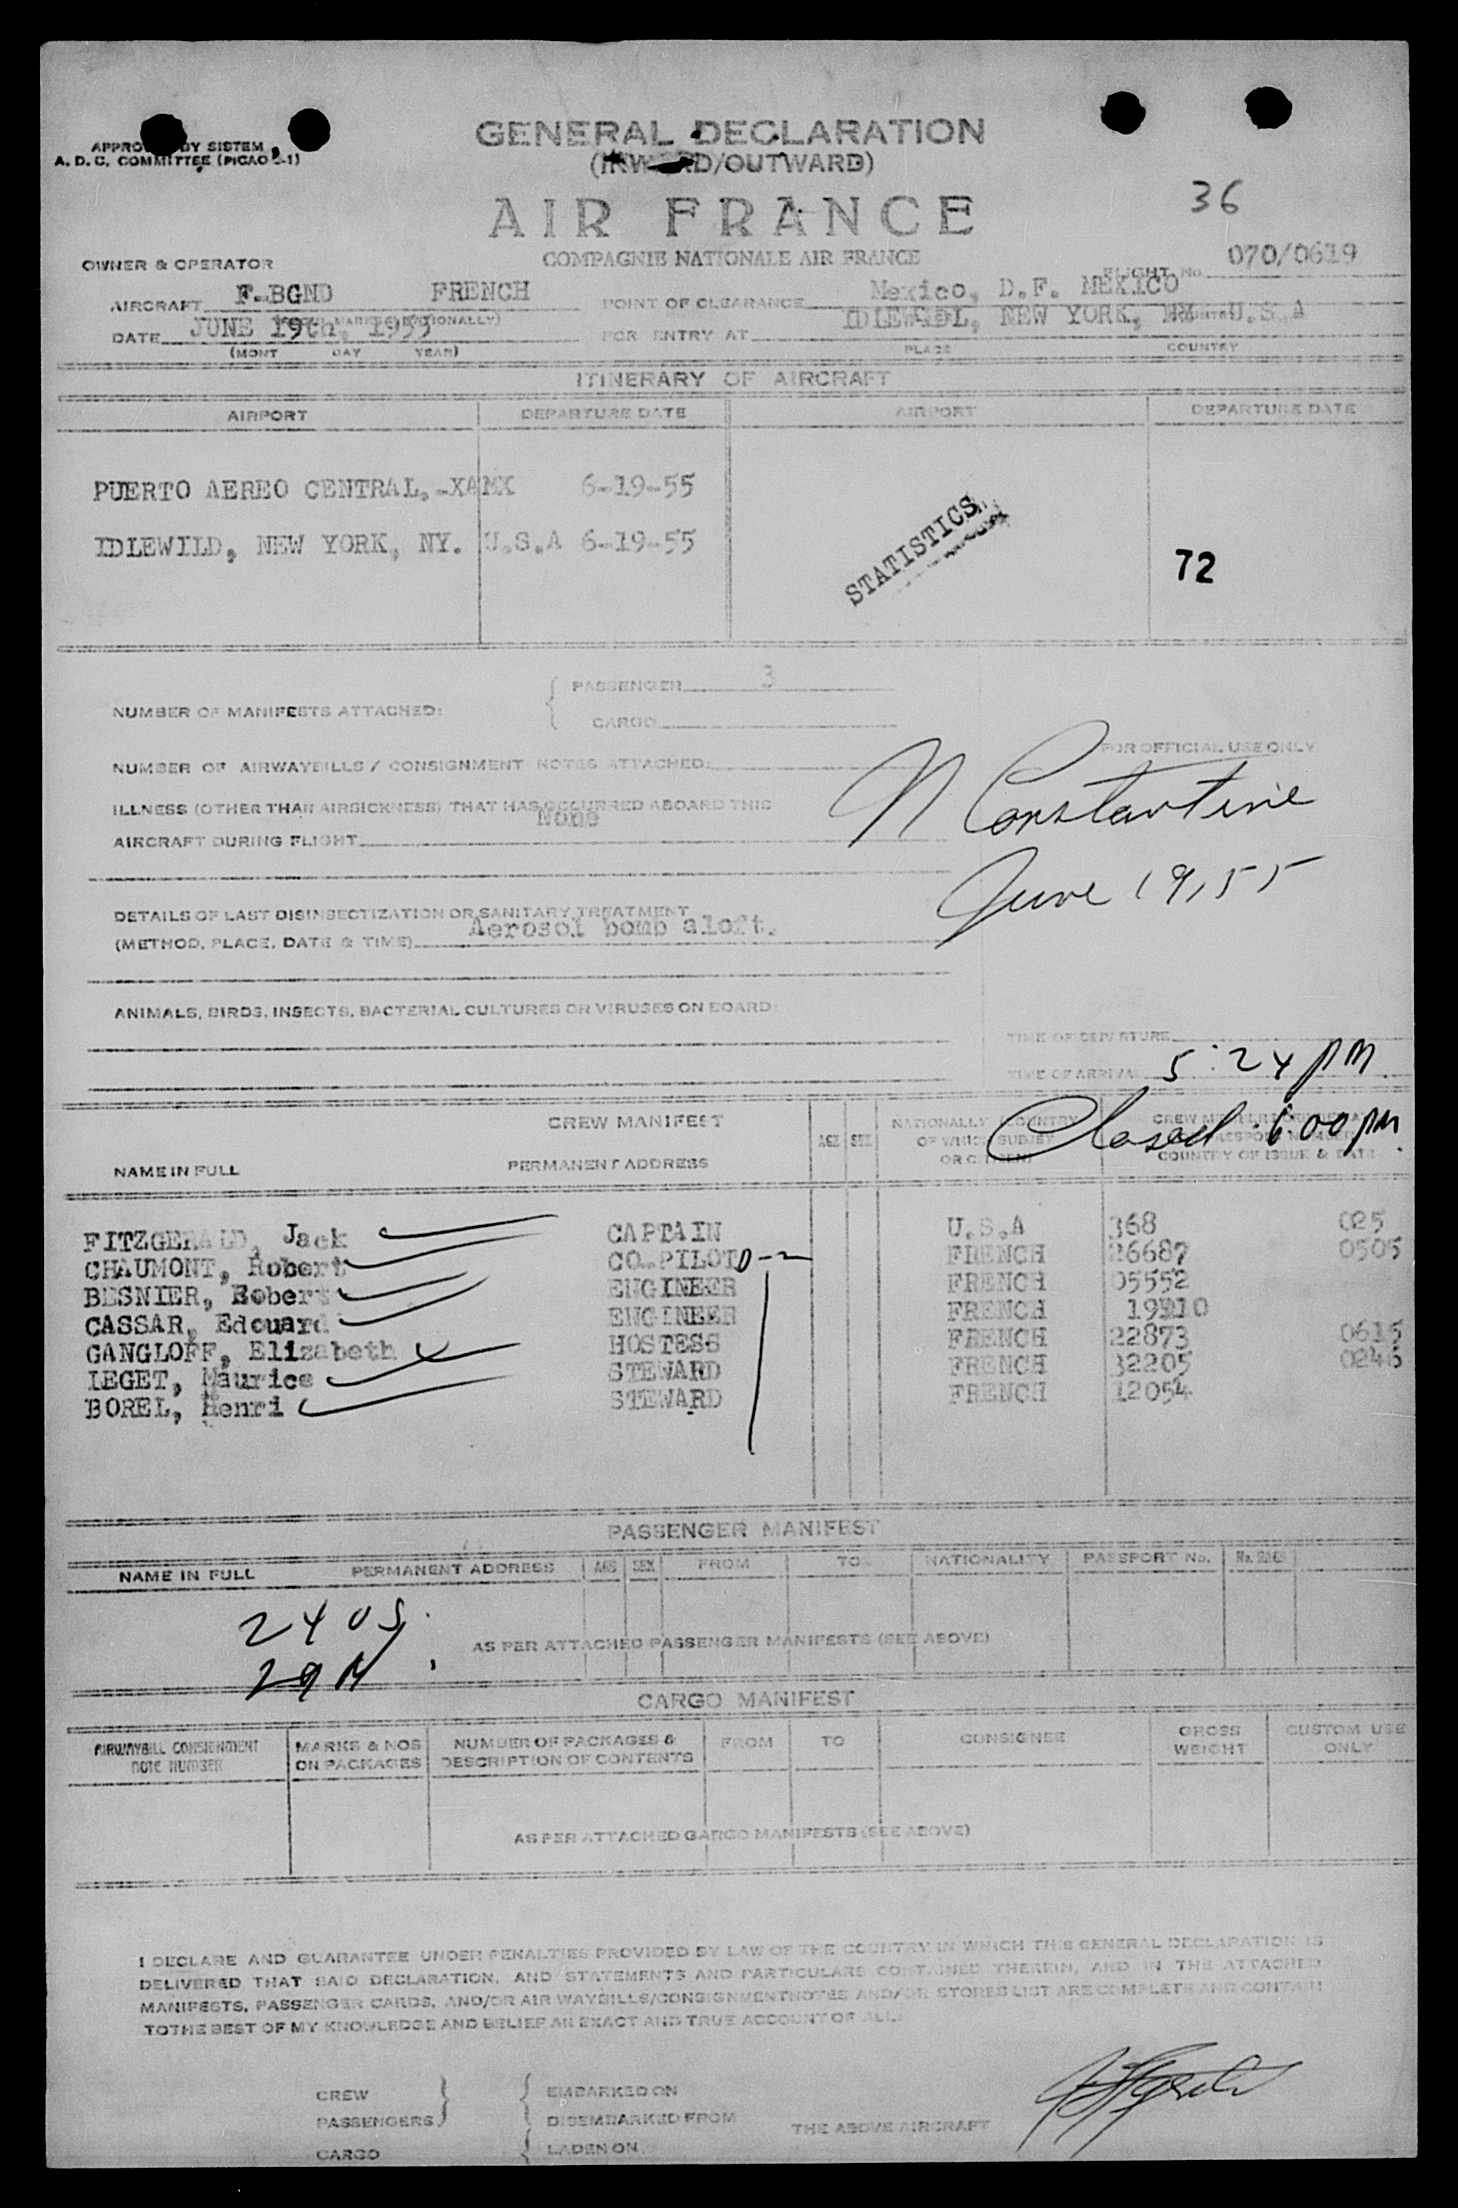 GENERAL DECLARATION
(INWARD/OUTWARD)
APPROVED BY SISTEM
A. D. C. COMMITTEE (PICAO -1)
AIR FRANCE
36
OWNER & OPERATOR
COMPAGNIE NATIONALE AIR FRANCE
FLIGHT No. 070/0619
AIRCRAFT F-BGND FRENCH
POINT OF CLEARANCE Mexico, D.F. MEXICO
DATE JUNE 19th, 1955
FOR ENTRY AT IDLEWIDL, NEW YORK, NY. U.S.A
(MONT DAY YEAR)
PLACE COUNTRY
ITINERARY OF AIRCRAFT
AIRPORT DEPARTURE DATE AIRPORT DEPARTURE DATE
PUERTO AEREO CENTRAL.-XAMX 6-19-55
IDLEWILD, NEW YORK, NY. U.S.A 6-19-55
STATISTICS
72
PASSENGER 3
NUMBER OF MANIFESTS ATTACHED:
CARGO
FOR OFFICIAL USE ONLY
NUMBER OF AIRWAYBILLS / CONSIGNMENT NOTES ATTACHED:
N Constantine
ILLNESS (OTHER THAN AIRSICKNESS) THAT HAS OCCURRED ABOARD THIS
AIRCRAFT DURING FLIGHT None
June 19, 55
DETAILS OF LAST DISINSECTIZATION OR SANITARY TREATMENT
(METHOD, PLACE, DATE & TIME) Aerosol bomb aloft.
ANIMALS, BIRDS, INSECTS, BACTERIAL CULTURES OR VIRUSES ON BOARD:
TIME OF DEPARTURE
TIME OF ARRIVAL 5:24 PM
Closed 6:00 PM
CREW MANIFEST
NAME IN FULL PERMANENT ADDRESS AGE SEX NATIONALLY (COUNTRY
OF WHICH SUBJET
OR CITIZEN)
COUNTRY OF ISSUE & DATE
FITZGERALD, Jack CAPTAIN U.S.A 368 025
CHAUMONT, Robert CO-PILOT FRENCH 26687 0505
BESNIER, Robert ENGINEER FRENCH 05552
CASSAR, Edouard ENGINEER FRENCH 19210
GANGLOFF, Elizabeth HOSTESS FRENCH 22873 0615
LEGET, Maurice STEWARD FRENCH 32205 0246
BOREL, Henri STEWARD FRENCH 12054
PASSENGER MANIFEST
NAME IN FULL PERMANENT ADDRESS AGE SEX FROM TO NATIONALITY PASSPORT No. No. BAGS
24 US
29 A
AS PER ATTACHED PASSENGER MANIFESTS (SEE ABOVE)
CARGO MANIFEST
AIRWAYBILL CONSIGNMENT NOTE NUMBER
MARKS & NOS ON PACKAGES
NUMBER OF PACKAGES & DESCRIPTION OF CONTENTS
FROM TO CONSIGNEE
GROSS WEIGHT
CUSTOM USE ONLY
AS PER ATTACHED CARGO MANIFESTS (SEE ABOVE)
I DECLARE AND GUARANTEE UNDER PENALTIES PROVIDED BY LAW OF THE COUNTRY IN WHICH THIS GENERAL DECLARATION IS
DELIVERED THAT SAID DECLARATION, AND STATEMENTS AND PARTICULARS CONTAINED THEREIN, AND IN THE ATTACHED
MANIFESTS, PASSENGER CARDS, AND/OR AIR WAYBILLS/CONSIGNMENTNOTES AND/OR STORES LIST ARE COMPLETE AND CONTAIN
TOTHE BEST OF MY KNOWLEDGE AND BELIEF AN EXACT AND TRUE ACCOUNT OF ALL.
CREW EMBARKED ON
PASSENGERS DISEMBARKED FROM THE ABOVE AIRCRAFT
CARGO LADEN ON